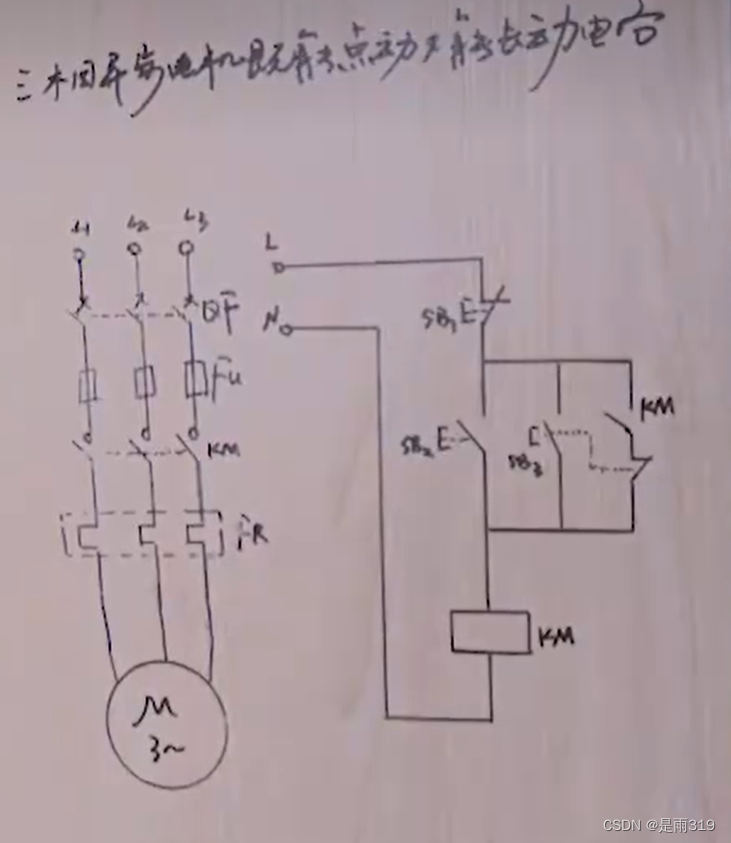 三相异步电机既能点动又能长运动电容
L1 L2 L3
L
QF
N
SB1
Fu
KM
SB2
SB3
KM
FR
KM
M
3~
CSDN @是雨319